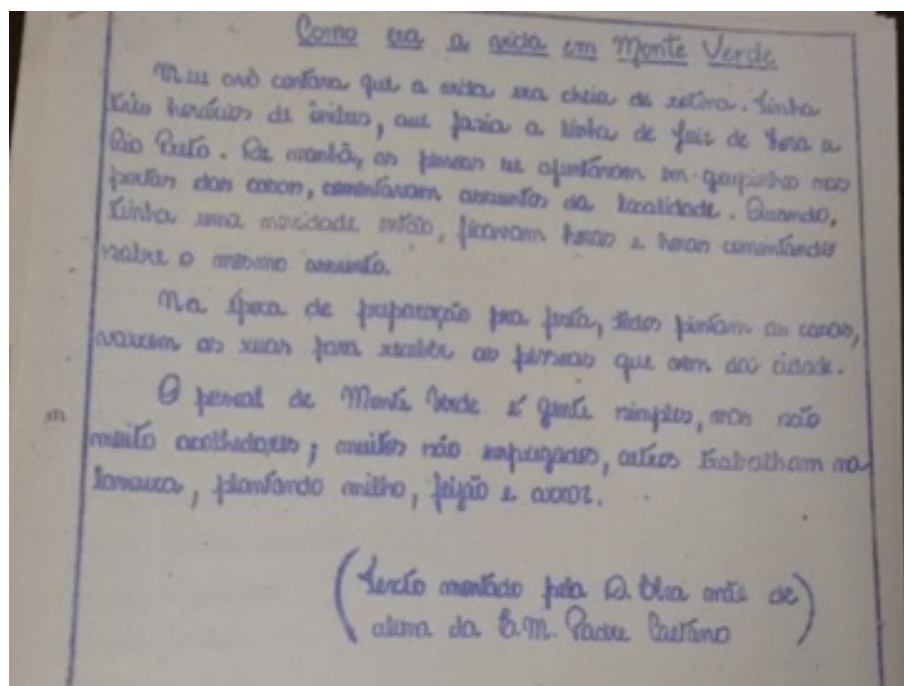 Como era a vida em Monte Verde
Meu avô contava que a vida era cheia de rotina. Tinha
três horários de ônibus, que fazia a linha de Juiz de Fora a
Rio Preto. De manhã, as pessoas se ajuntavam em grupinhos nas
portas das casas, comentavam assuntos da localidade. Quando,
tinha uma novidade então, ficavam horas e horas comentando
sobre o mesmo assunto.
Na época de preparação pra festa, todos pintam as casas,
varrem as ruas para receber as pessoas que vem da cidade.
O pessoal de Monte Verde é gente simples, mas são
muito acolhedores; muitos são empregados, outros trabalham na
lavoura, plantando milho, feijão e arroz.
(Texto montado pela D. mãe de
aluna da E.M. Padre Caetano)